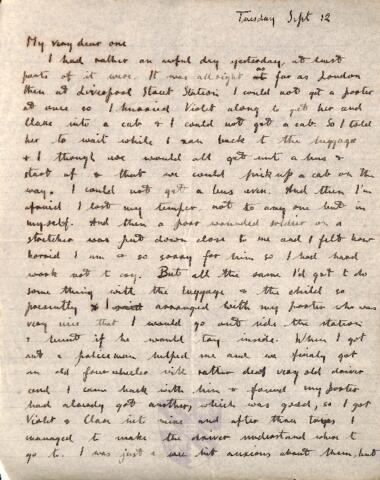 Tuesday Sept 12
My very dear one
I had rather an awful day yesterday, at least
parts of it were. It was allright as far as London
then at Liverpool Street Station I could not get a porter
at once so I hurried Violet along to get her and
Clare into a cab & I could not get a cab. So I told
her to wait while I ran back to the luggage
& I though we would all get into a bus &
start off & that we could pick up a cab on the
way. I could not get a bus even. And then I'm
afraid I lost my temper not to any one but in
myself. And then a poor wounded soldier on a
stretcher was put down close to me and I felt how
horrid I am & so sorry for him so I had hard
work not to cry. But all the same I'd got to do
something with the luggage & the child so
presently I arranged with my porter who was
very nice that I would go outside the station
& hunt if he would stay inside. When I got
out a policeman helped me and we finally got
an old four wheeler with rather deaf very old driver
and I came back with him & found my porter
had already got another, which was good, so I got
Violet & Clare into mine and after than
managed to make the driver understand where to
go to. I was just a wee bit anxious about them, but